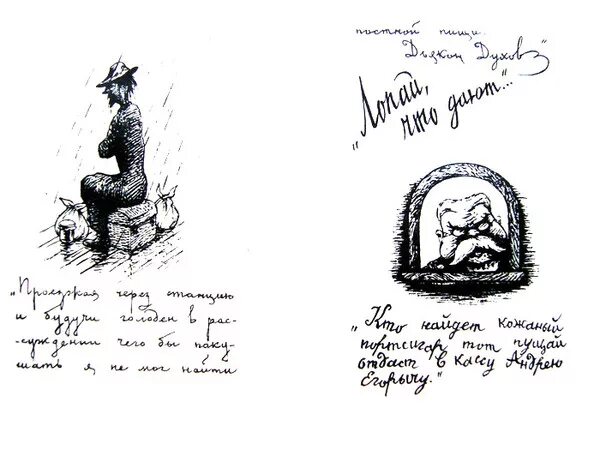 „Проезжая через станцию
и будучи голоден в рас-
-суждении чего бы поку-
шать я не мог найти
постной пищи.
Дьякон Духов"
„Лопай,
что дают"...
„Кто найдет кожаный
портсигар тот пущай
отдаст в кассу Андрею
Егорычу."